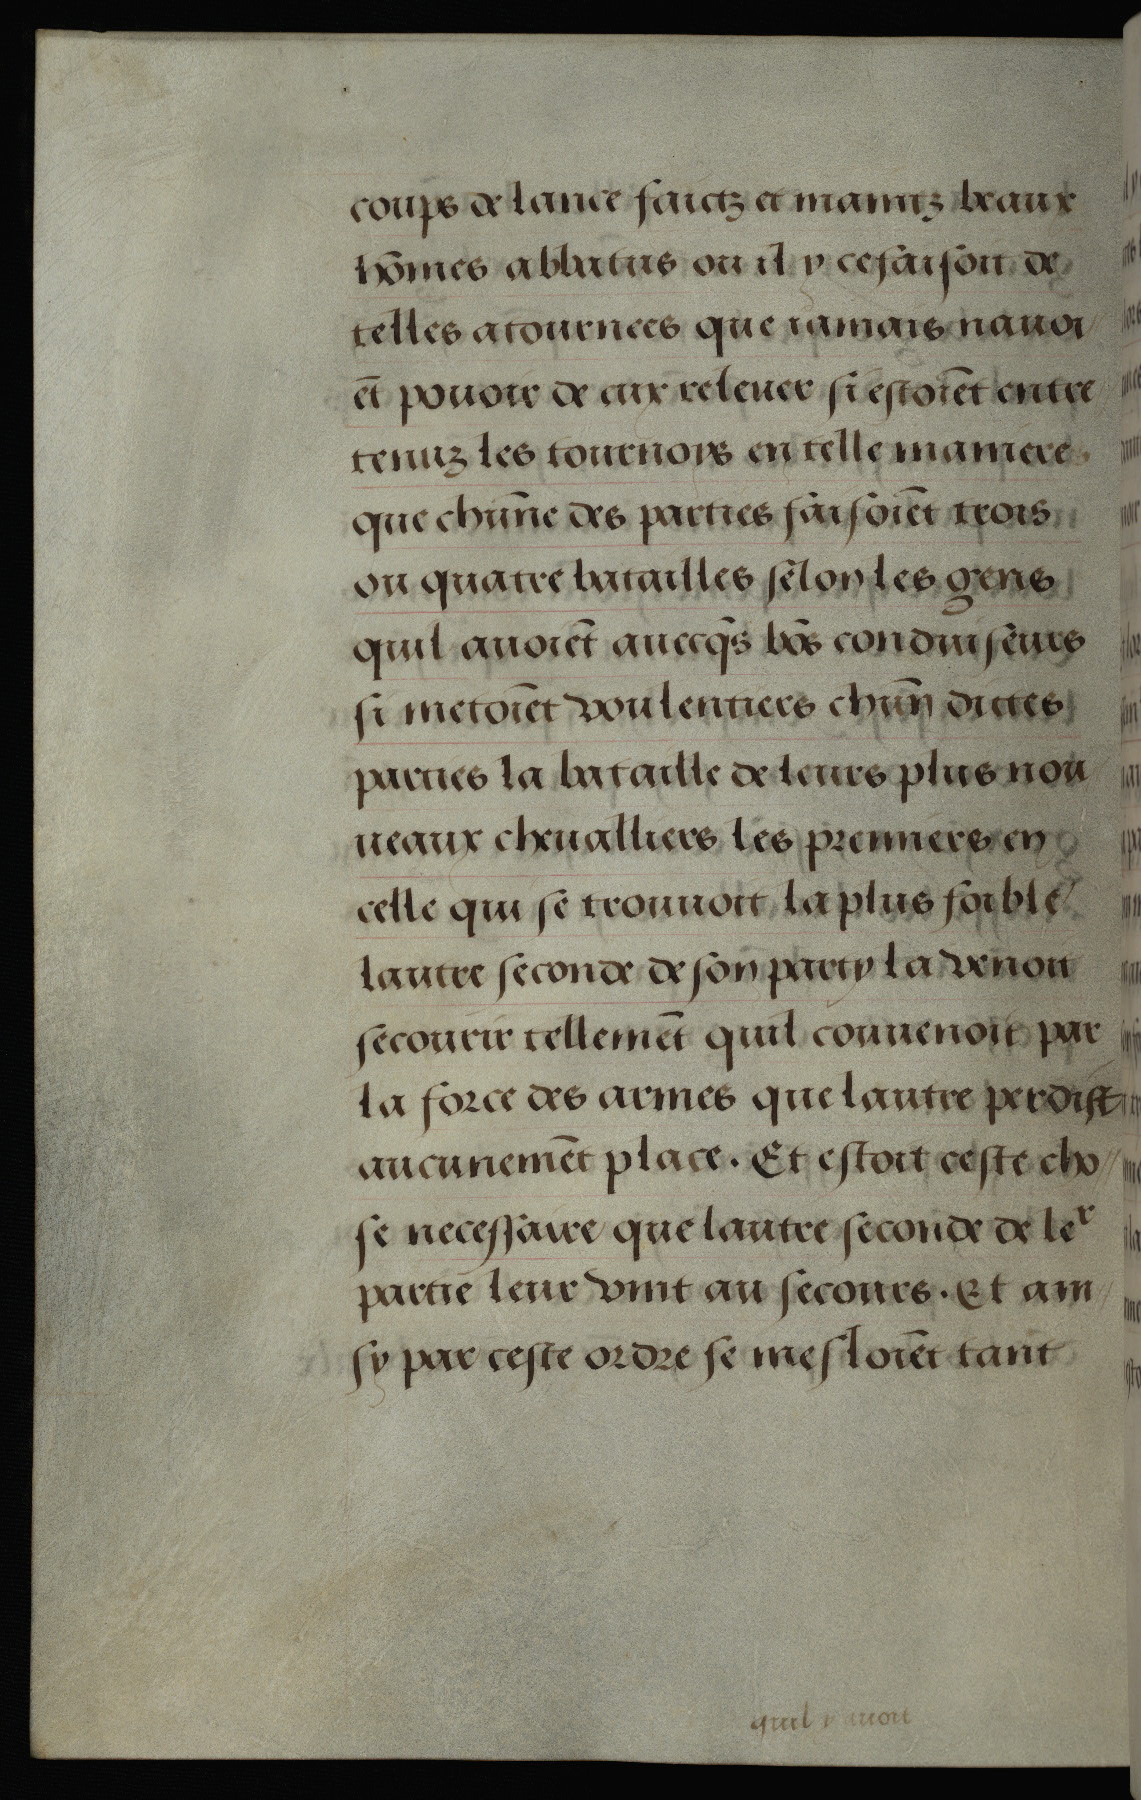 coups de lance faictz et maintz beaux
hōmes abbatus ou il y cefaisoit de
telles atournees que iamais nauoi
ēt pouoir de eux releuer si estoiēt entre
tenuz les tournoys en telle maniere
que chūne des parties faisoiēt trois
ou quatre batailles selon les gens
quil auoiēt auecq̄s bōs conduiseurs
si metoiēt voulentiers chūn dictes
parties la bataille de leurs plus nou
ueaux cheualliers les premiers en
celle qui se trouuoit la plus foible
lautre seconde de son party la venoit
secourir tellemēt quil conuenoit par
la force des armes que lautre perdist
aucunemēt place. Et estoit ceste cho//
se necessaire que lautre seconde de leʳ
partie leur vint au secours. Et ain/
sy par ceste ordre se mesloiēt tant
quil y auoit